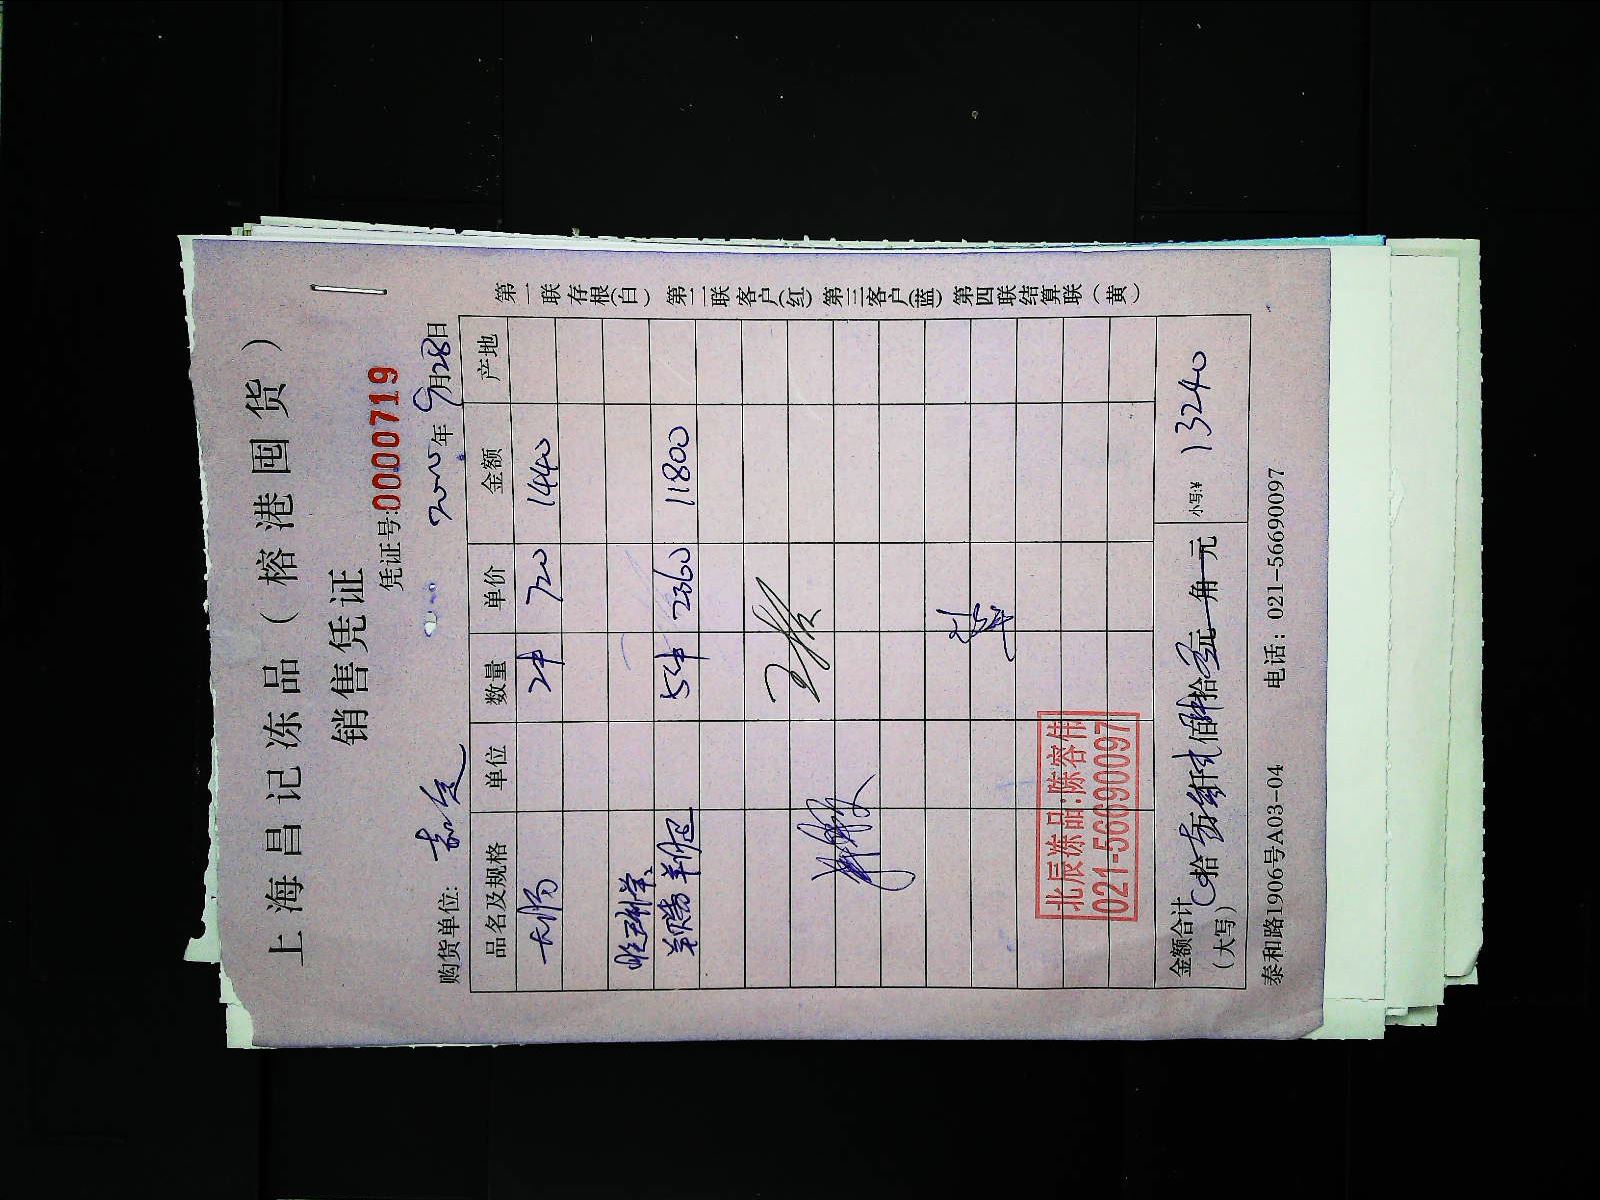 上海昌记冻品（榕港囤货）
销售凭证
凭证号:0000719
购货单位: 2020年9月28日
品名及规格 单位 数量 单价 金额 产地
大肠 2件 720 1440
5件 2360 11800
北辰冻品:陈容伟
021-56690097
金额合计（大写） 拾 万 仟 佰 拾 元 角 元 小写:¥ 13240
泰和路1906号A03-04 电话: 021-56690097
第一联存根(白) 第二联客户(红) 第三客户(蓝) 第四联结算联（黄）